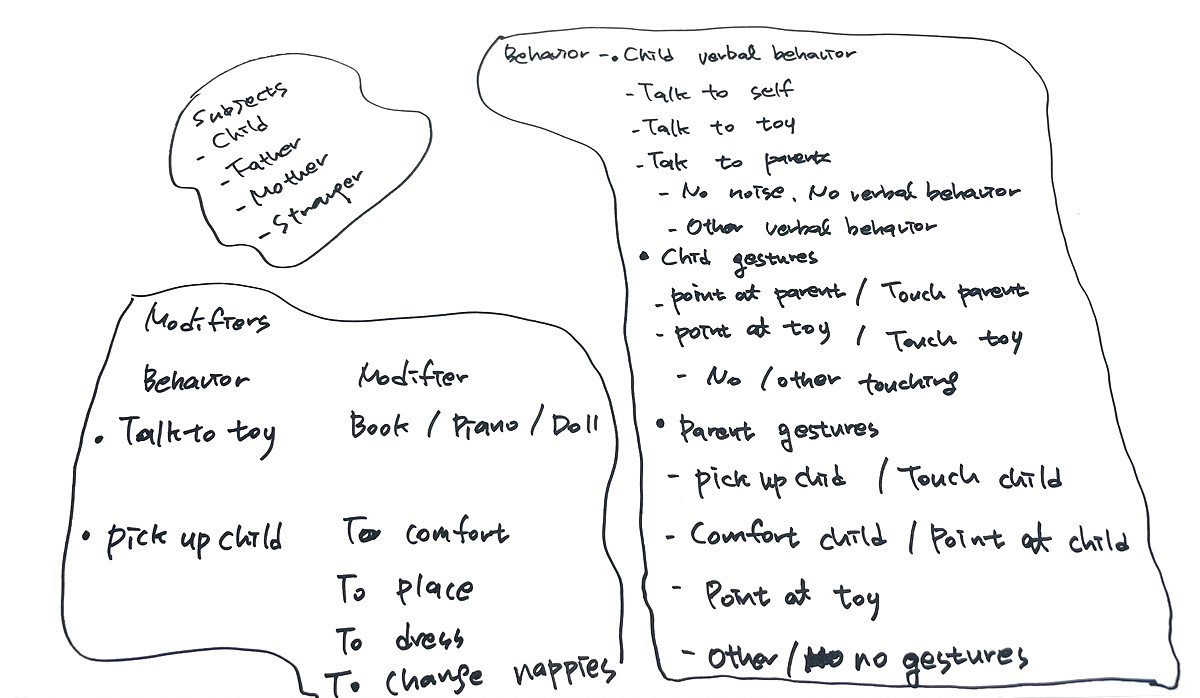 Subjects
- Child
- Father
- Mother
- Stranger
Behavior - • Child verbal behavior
- Talk to self
- Talk to toy
- Talk to parents
- No noise, No verbal behavior
- Other verbal behavior
• Chid gestures
- point at parent / Touch parent
- point at toy / Touch toy
- No / other touching
• Parent gestures
- pick up chid / Touch child
- Comfort child / Point at child
- Point at toy
- Other / no gestures
Modifiers
Behavior Modifier
• Talk to toy Book / Piano / Doll
• pick up child To comfort
To place
To dress
To change nappies